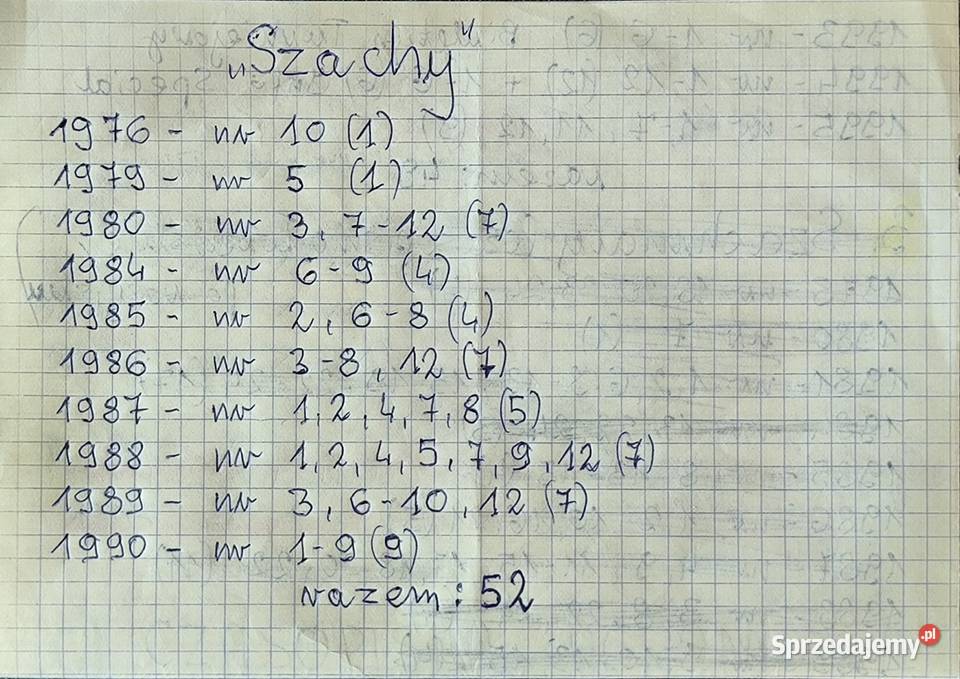 „Szachy"
1976 - nr 10 (1)
1979 - nr 5 (1)
1980 - nr 3, 7-12 (7)
1984 - nr 6-9 (4)
1985 - nr 2, 6-8 (4)
1986 - nr 3-8, 12 (7)
1987 - nr 1, 2, 4, 7, 8 (5)
1988 - nr 1, 2, 4, 5, 7, 9, 12 (7)
1989 - nr 3, 6-10, 12 (7)
1990 - nr 1-9 (9)
razem: 52
Sprzedajemy.pl